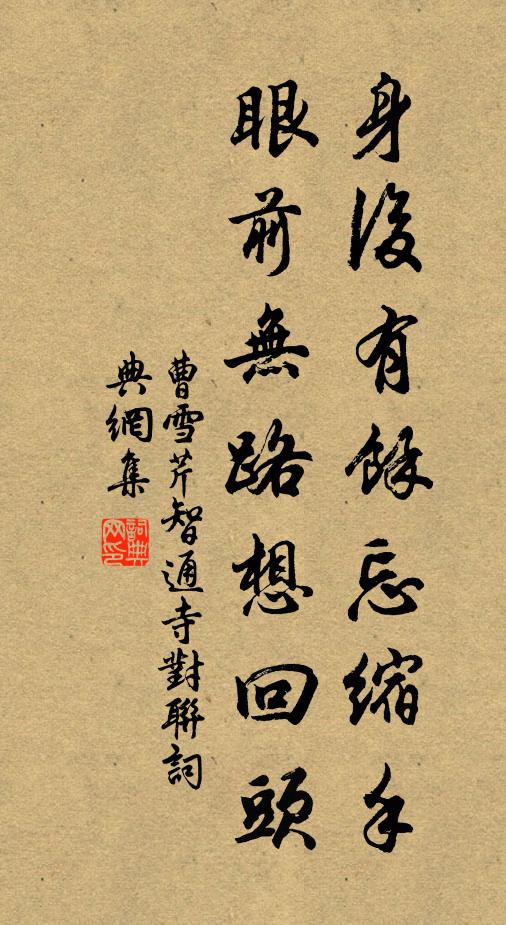 身後有餘忘縮手
眼前無路想回頭
曹雪芹智通寺對聯詞
典網集
詞典網印